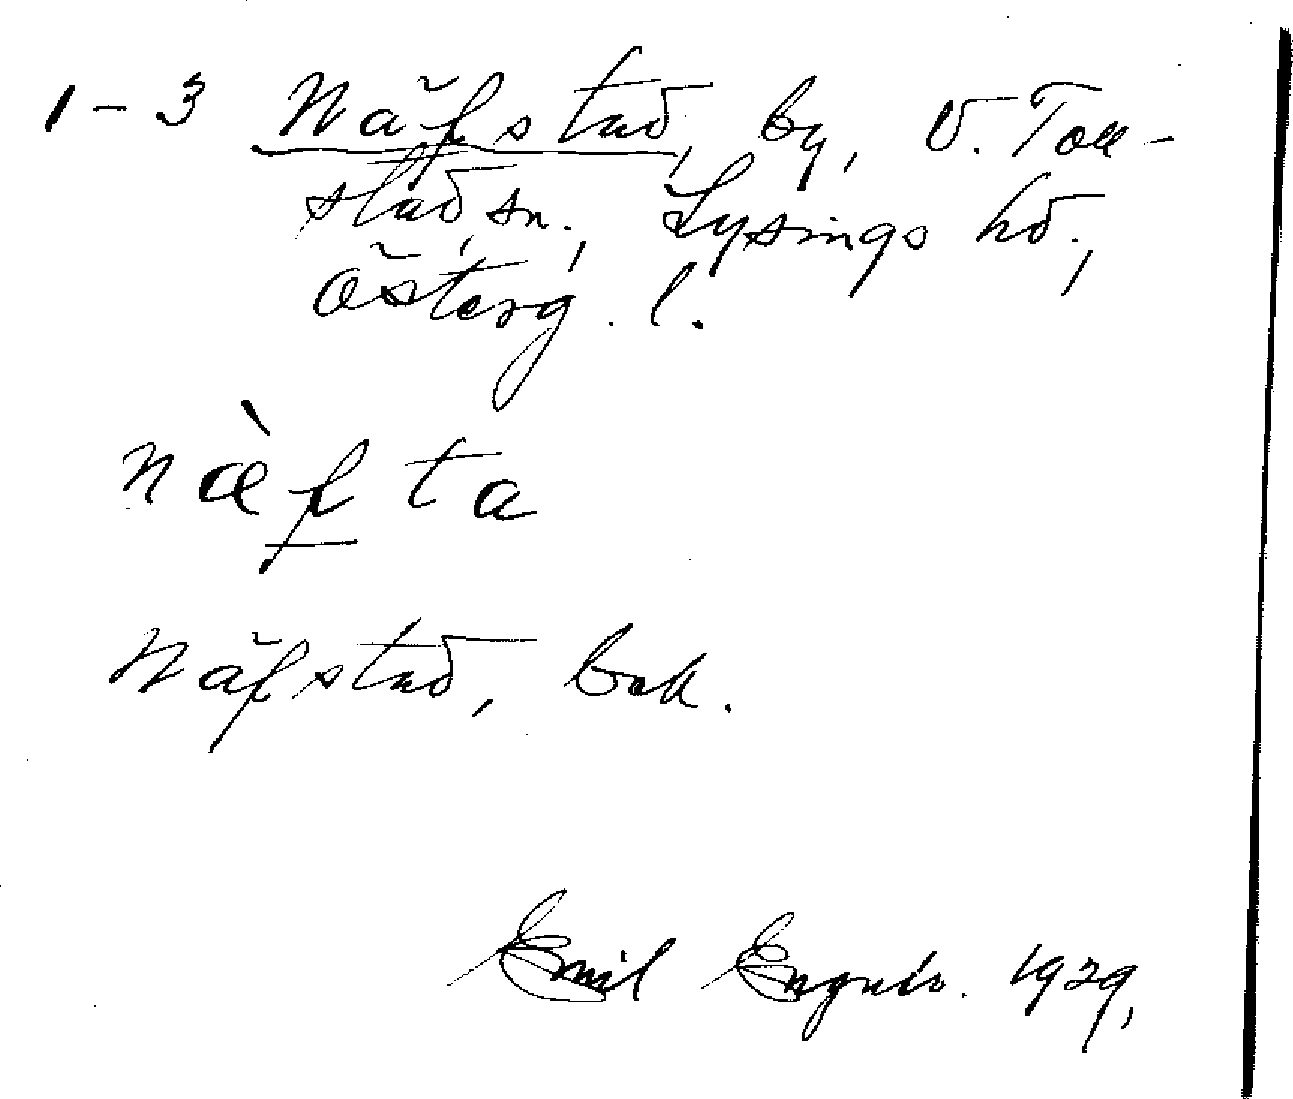 1-3 Näfstad, by, V. Toll-
stad sn., Lysings hd.,
Österg. l.
næ̀f ta
Näfstad, bok.
Emil 1929,